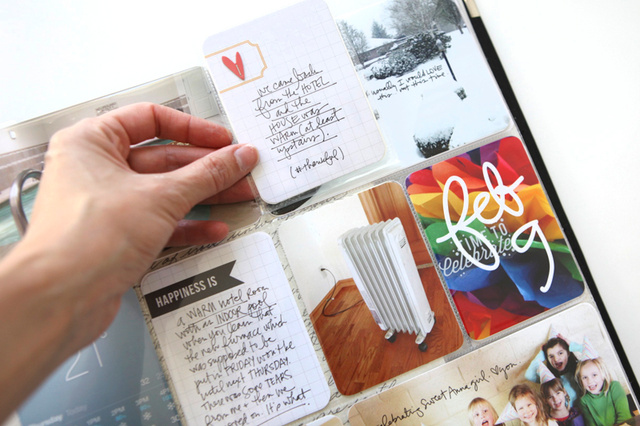 we came back
from the HOTEL
and the
HOUSE was
WARM (at least
upstairs).
(#thankful)
usually I would LOVE
this time
HAPPINESS IS
a WARM hotel room
with an INDOOR pool
when you learn that
the new furnace which
was supposed to be
put in FRIDAY won't be
until next THURSDAY.
There were some TEARS
from me + then we
moved on. it's what
feb
9
TIME TO
Celebrate
21°
Thursday Today
celebrating Sweet Anna girl. ♡